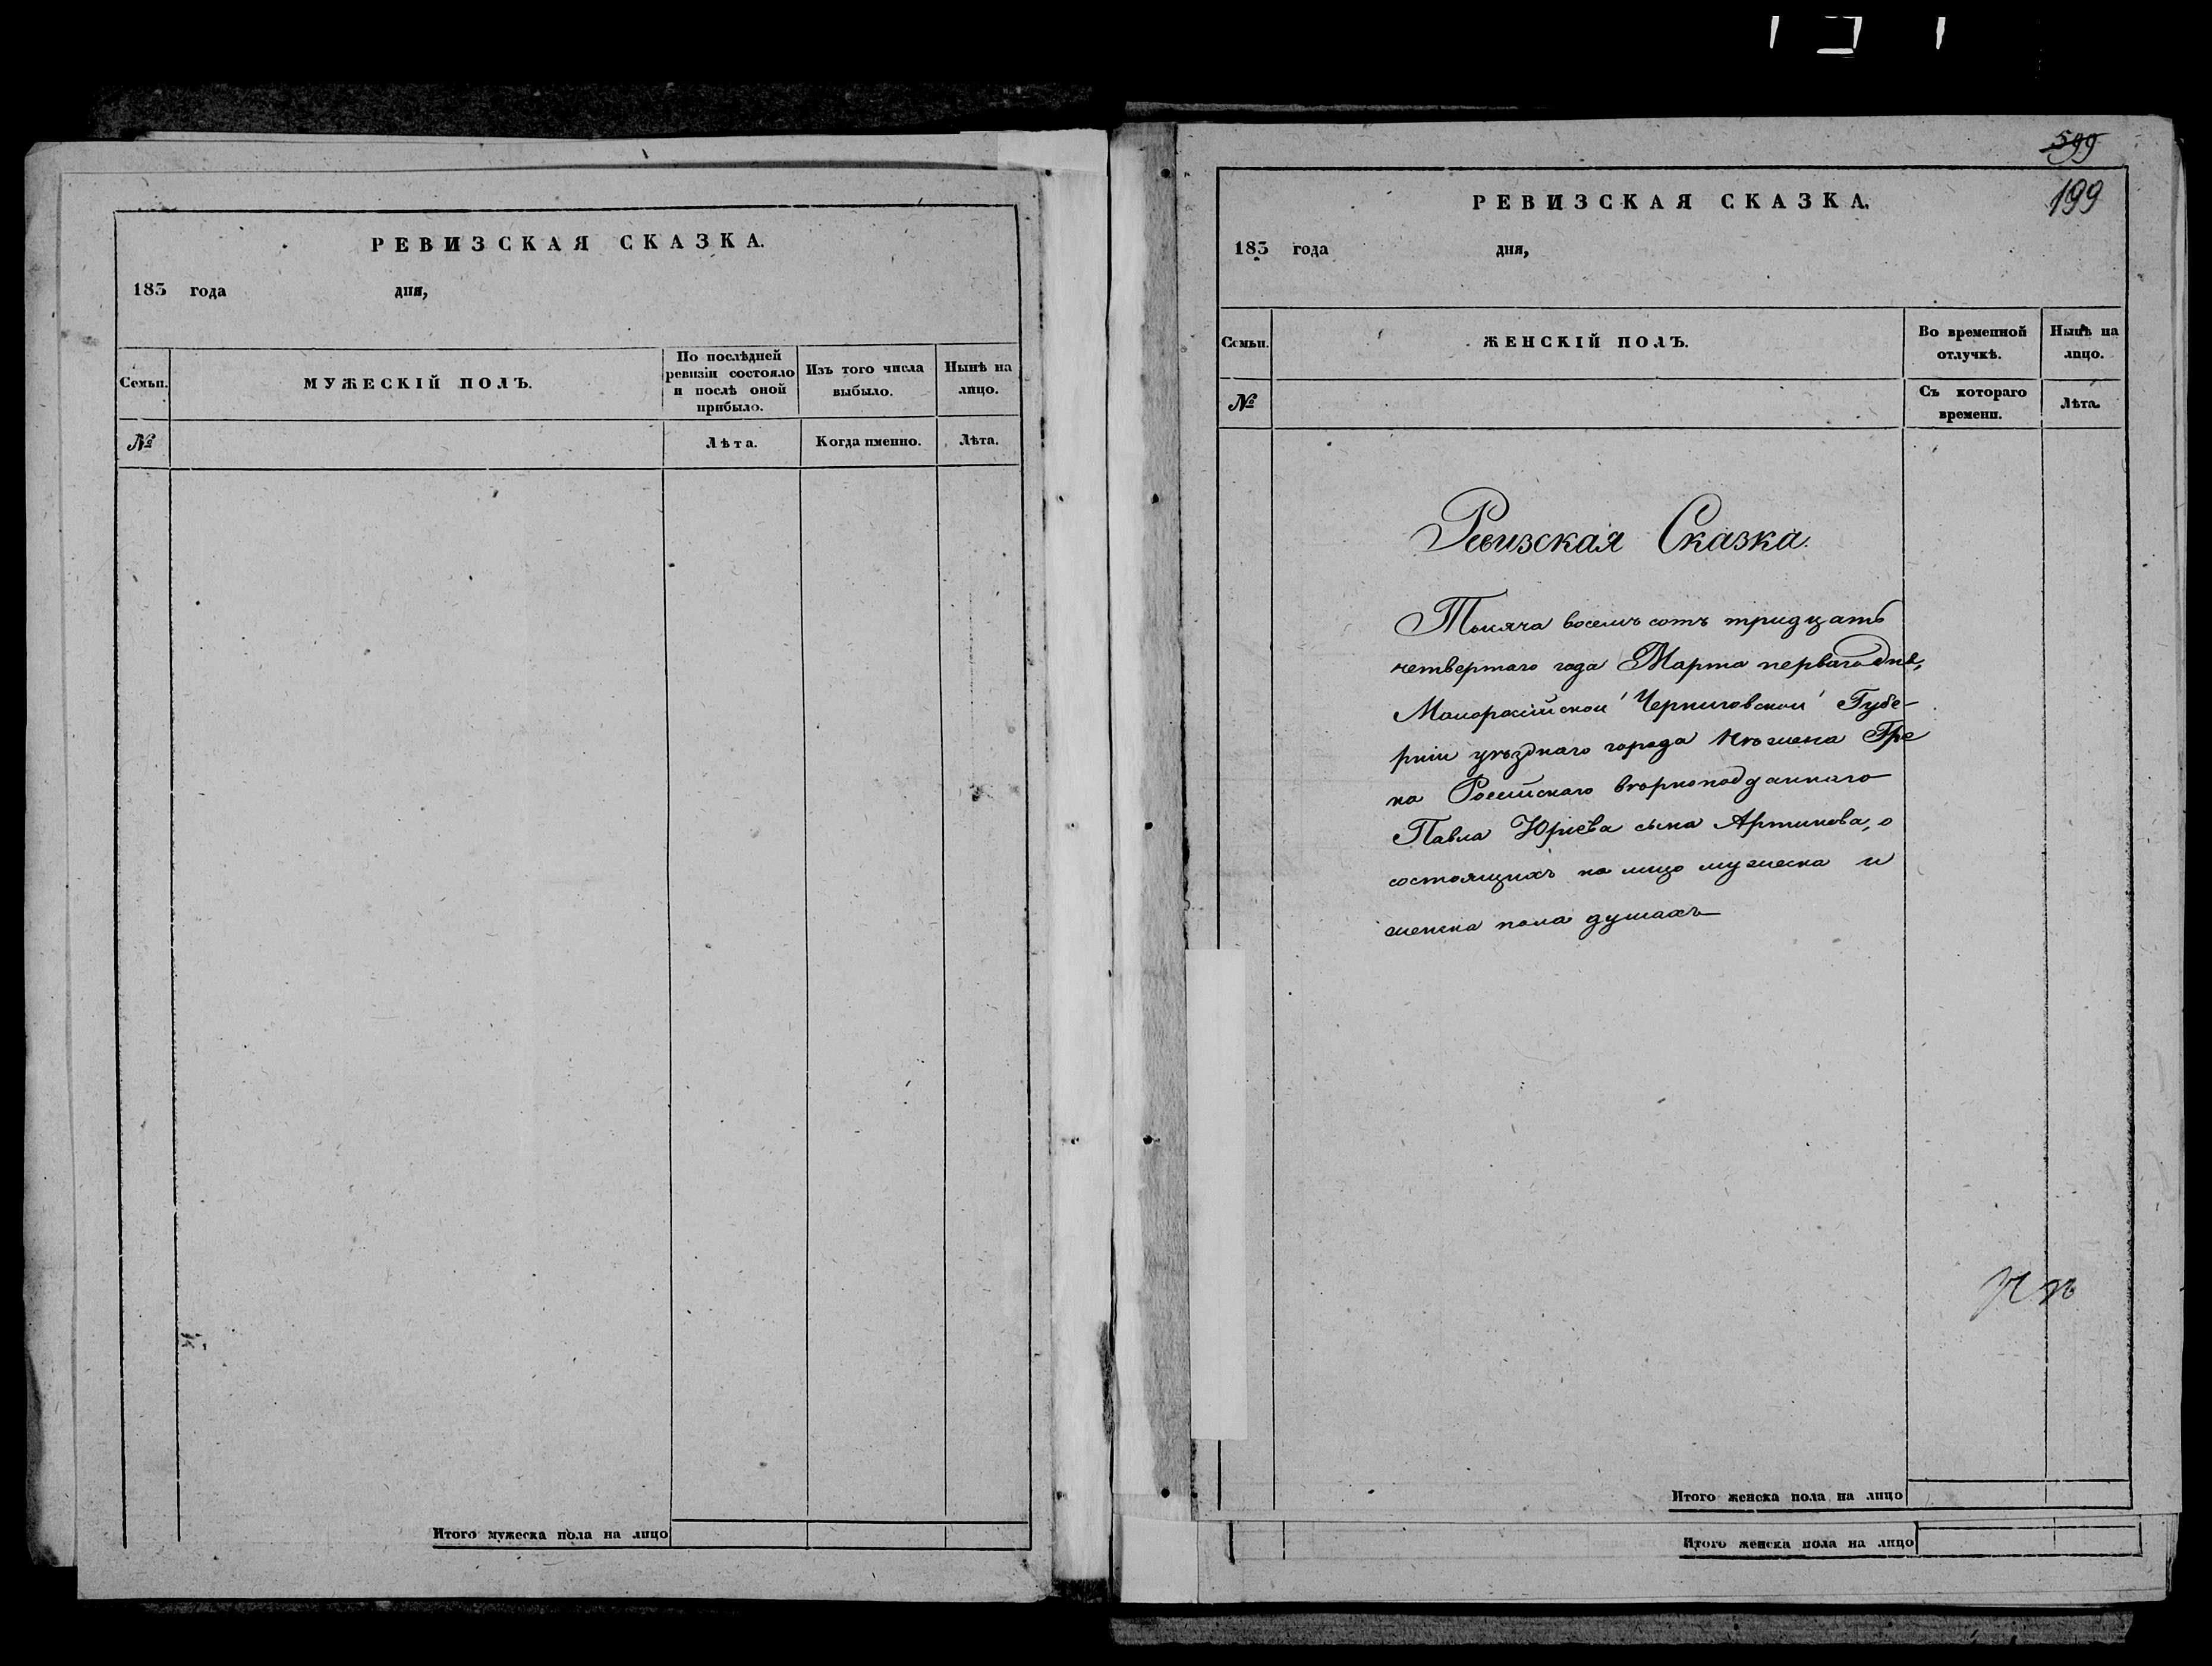 РЕВИЗСКАЯ СКАЗКА.
183 года дня,
Семьи.
МУЖЕСКІЙ ПОЛЪ.
По послѣдней ревизіи состояло и послѣ оной прибыло.
Изъ того числа выбыло.
Нынѣ на лицо.
№
Лѣта.
Когда именно.
Лѣта.
Итого мужеска пола на лицо
599
199
РЕВИЗСКАЯ СКАЗКА.
183 года дня,
Семьи.
ЖЕНСКІЙ ПОЛЪ.
Во временной отлучкѣ.
Нынѣ на лицо.
№
Съ котораго времени.
Лѣта.
Ревизская Сказка.
Тысяча восемь сотъ тридцать
четвертаго года Марта перваго дня,
Малоросійской Черниговской Губе-
рніи уѣзднаго города Нѣжина Гре
ка Россійскаго вѣрноподданнаго
Павла Юріева сына Артинова, о
состоящихъ на лицо мужеска и
женска пола душахъ
Итого женска пола на лицо
Итого женска пола на лицо